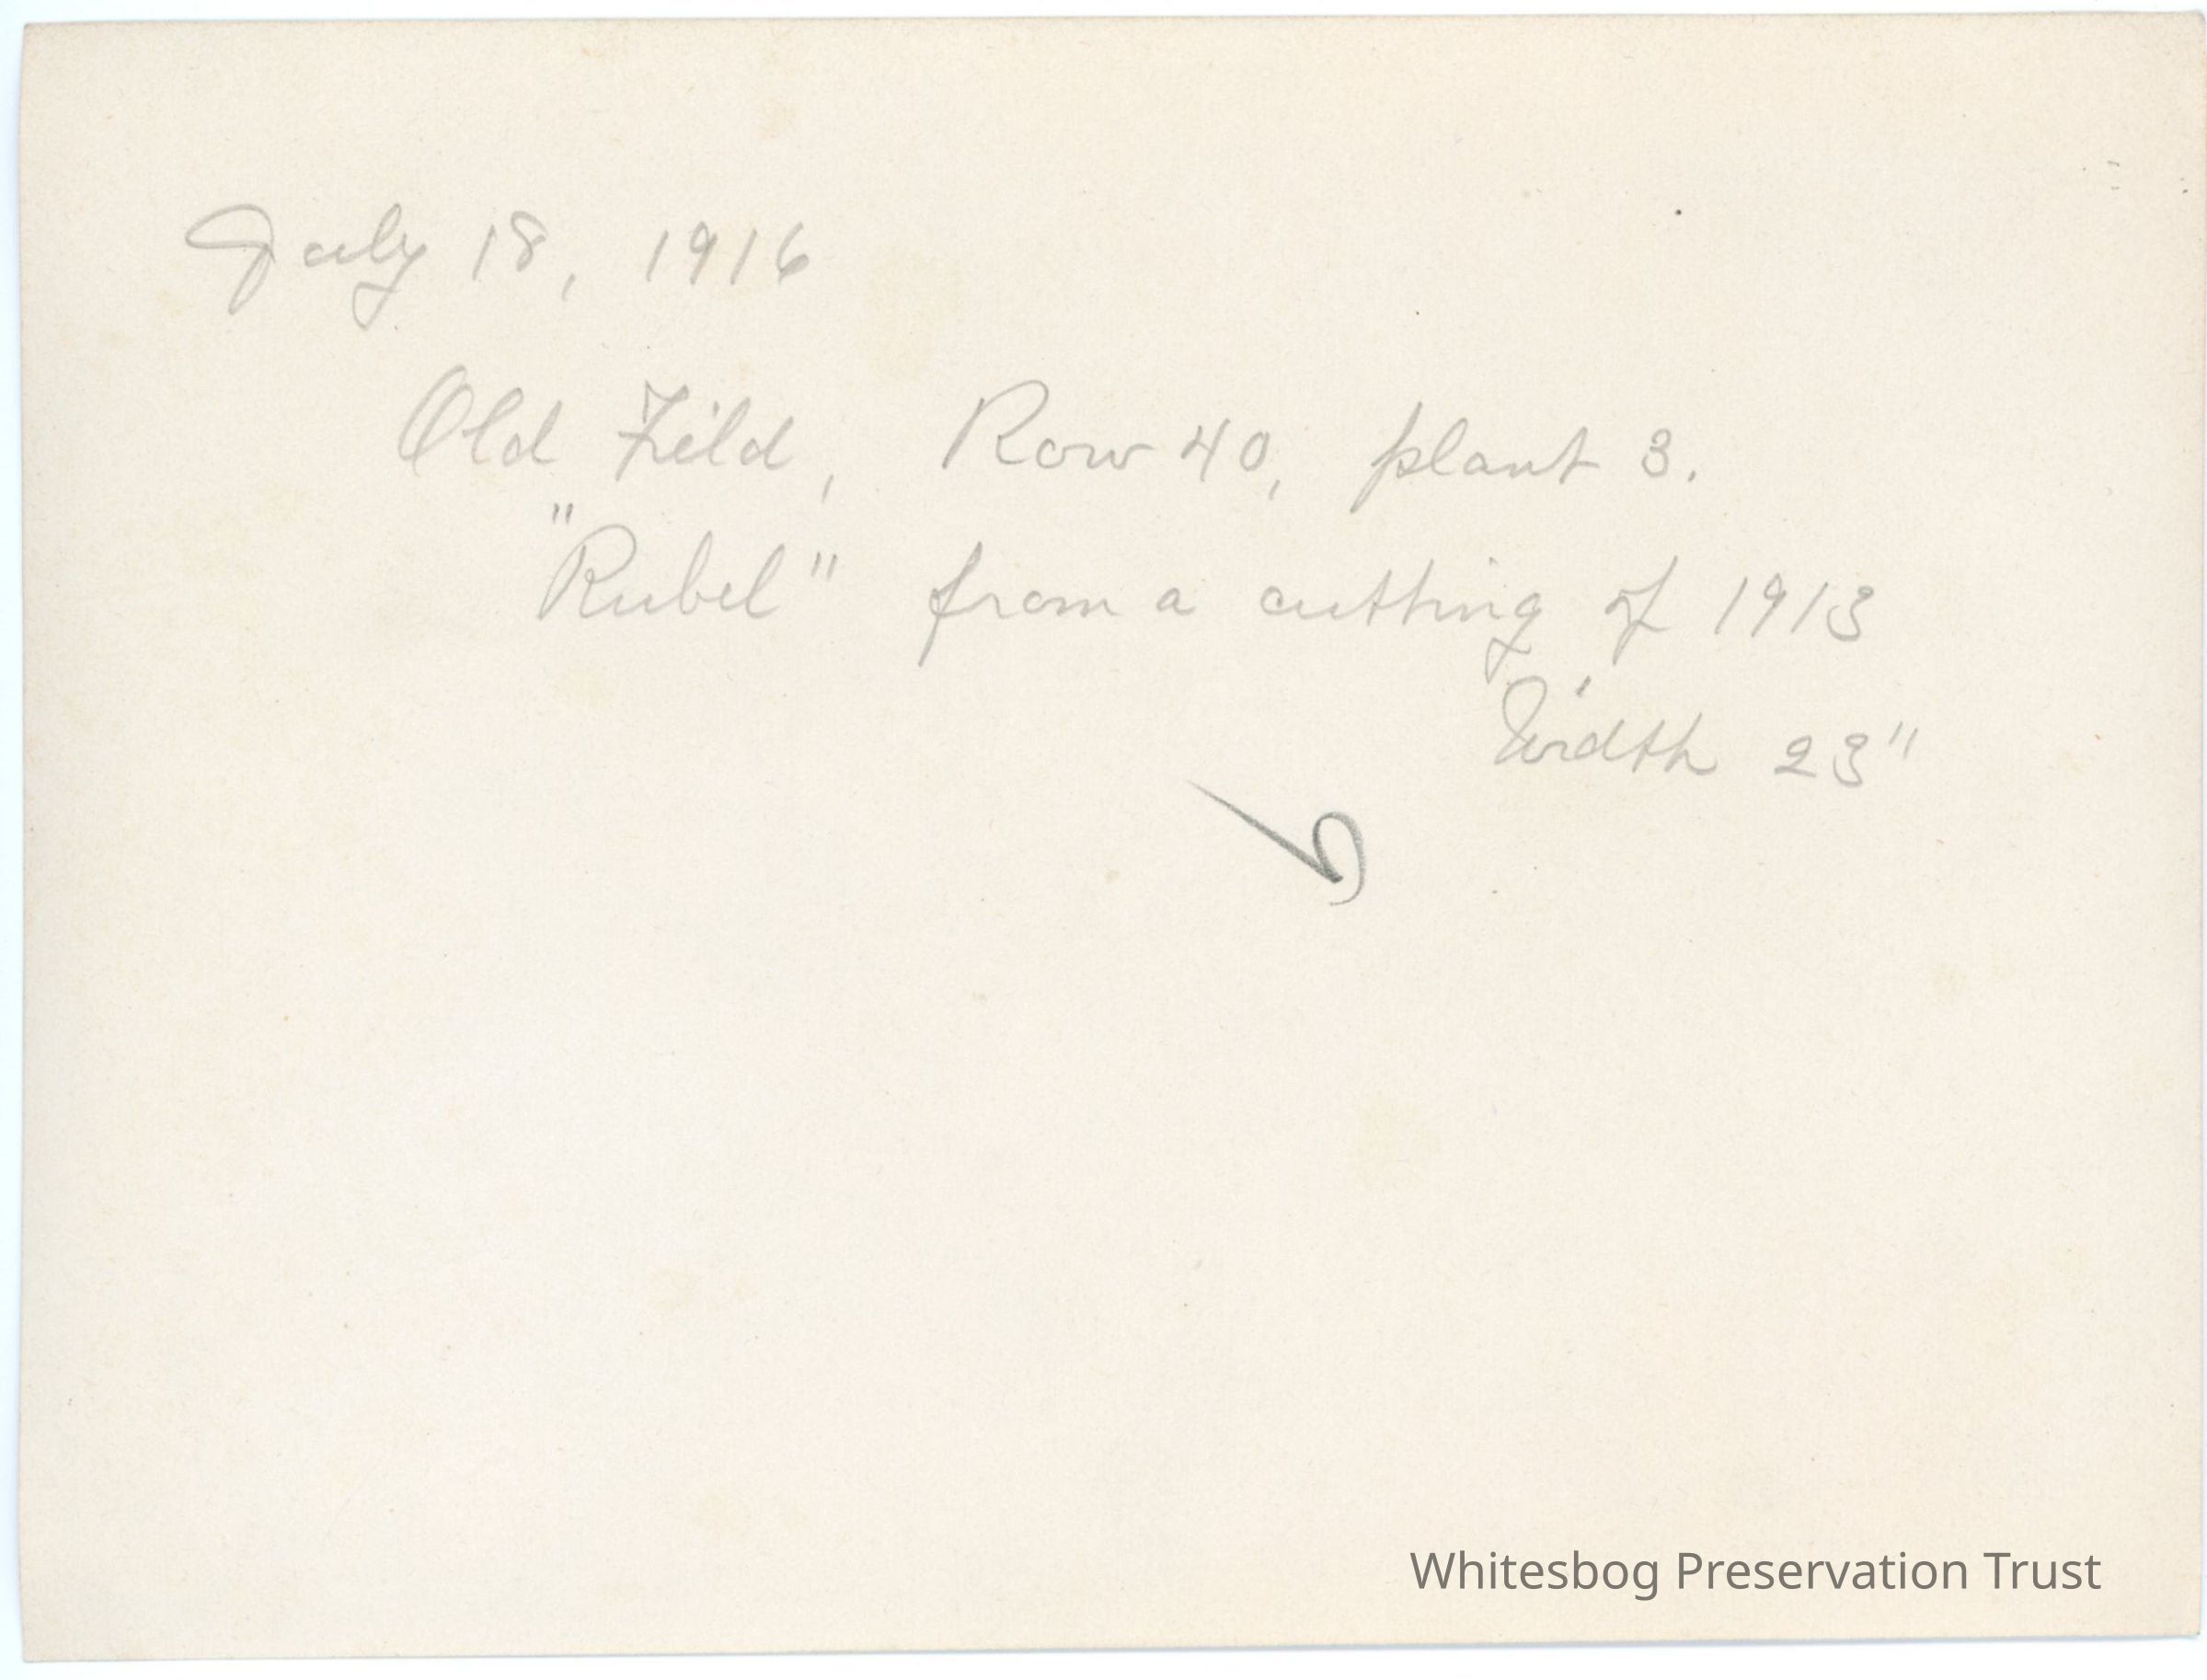 July 18, 1916
Old Field, Row 40, plant 3.
"Rubel" from a cutting of 1913
Width 23"
Whitesbog Preservation Trust